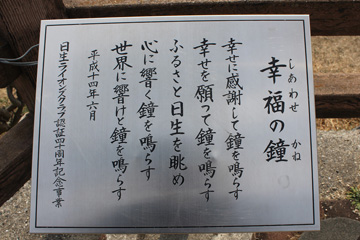 幸福の鐘
しあわせ かね
幸せに感謝して鐘を鳴らす
幸せを願って鐘を鳴らす
ふるさと日生を眺め
心に響く鐘を鳴らす
世界に響けと鐘を鳴らす
平成十四年六月
日生ライオンズクラブ認証四十周年記念事業